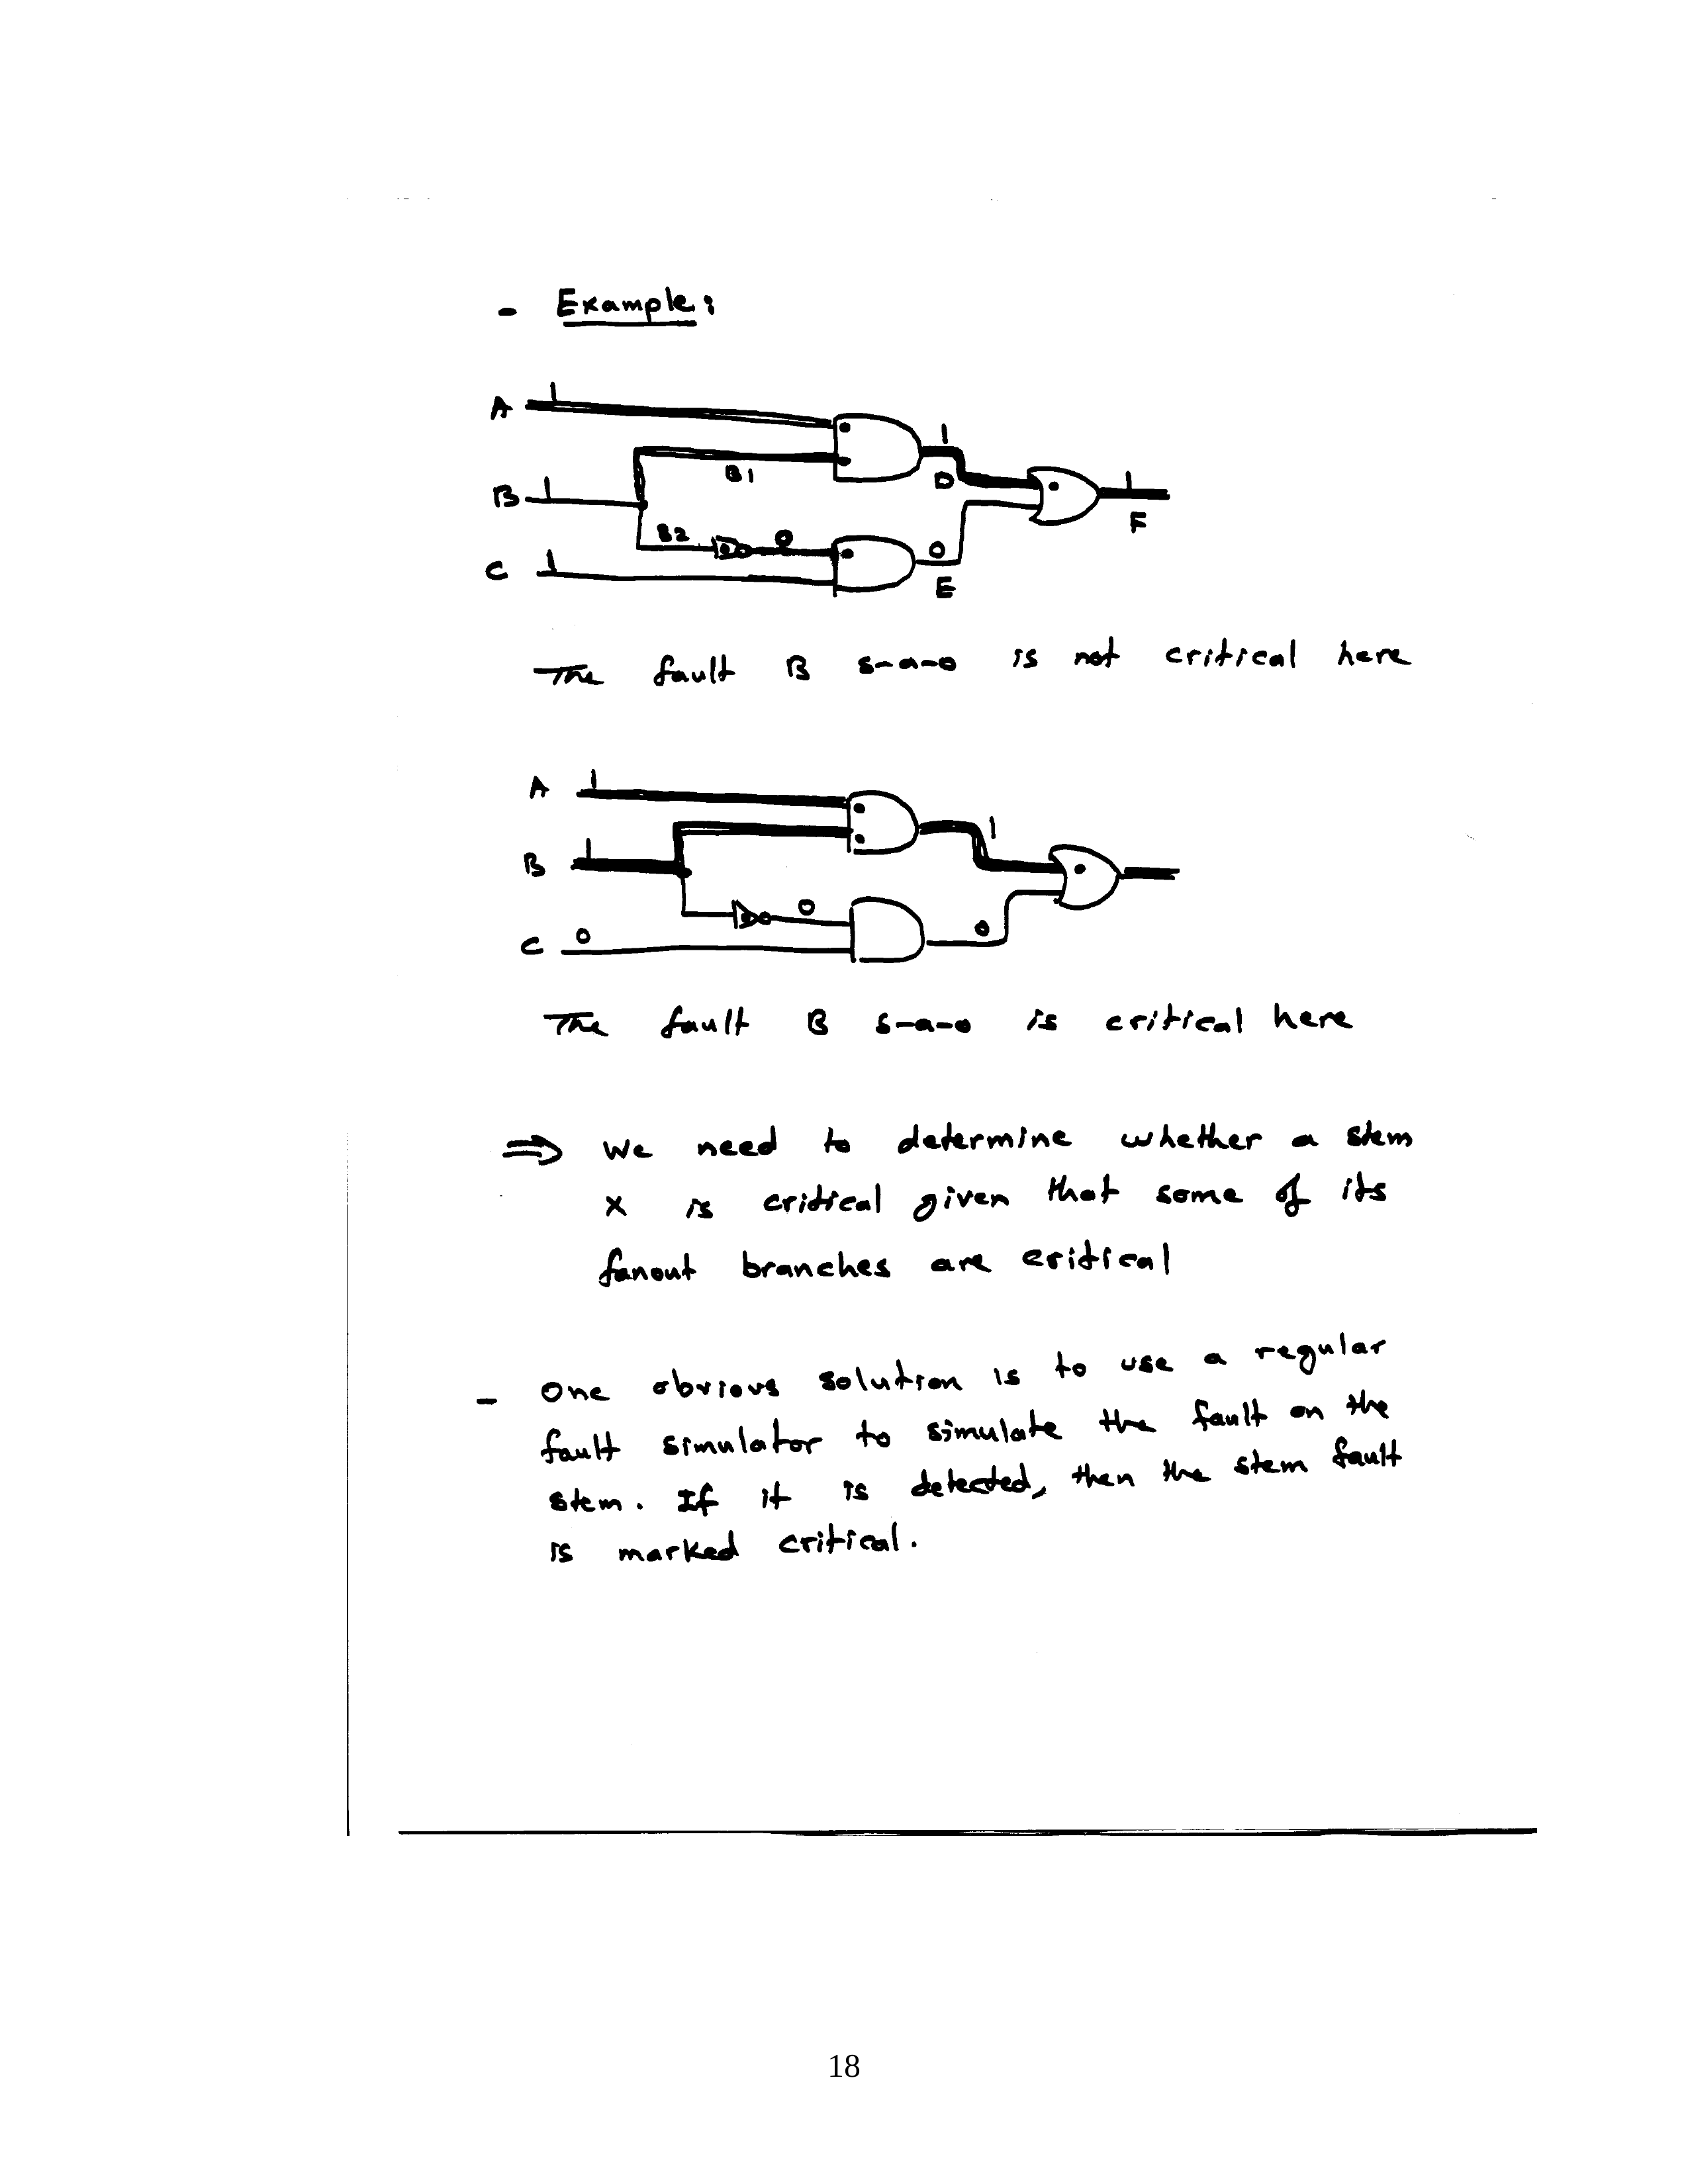 - Example:
A 1
1
B1
D
B 1
1
F
B2
0
0
C 1
E
The fault B s-a-0 is not critical here
A 1
1
B 1
0
0
C 0
The fault B s-a-0 is critical here
⇒ We need to determine whether a stem
X is critical given that some of its
fanout branches are critical
- One obvious solution is to use a regular
fault simulator to simulate the fault on the
stem. If it is detected, then the stem fault
is marked critical.
18